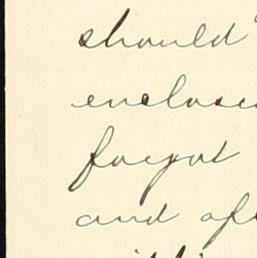 should
enclose
forgot
and af